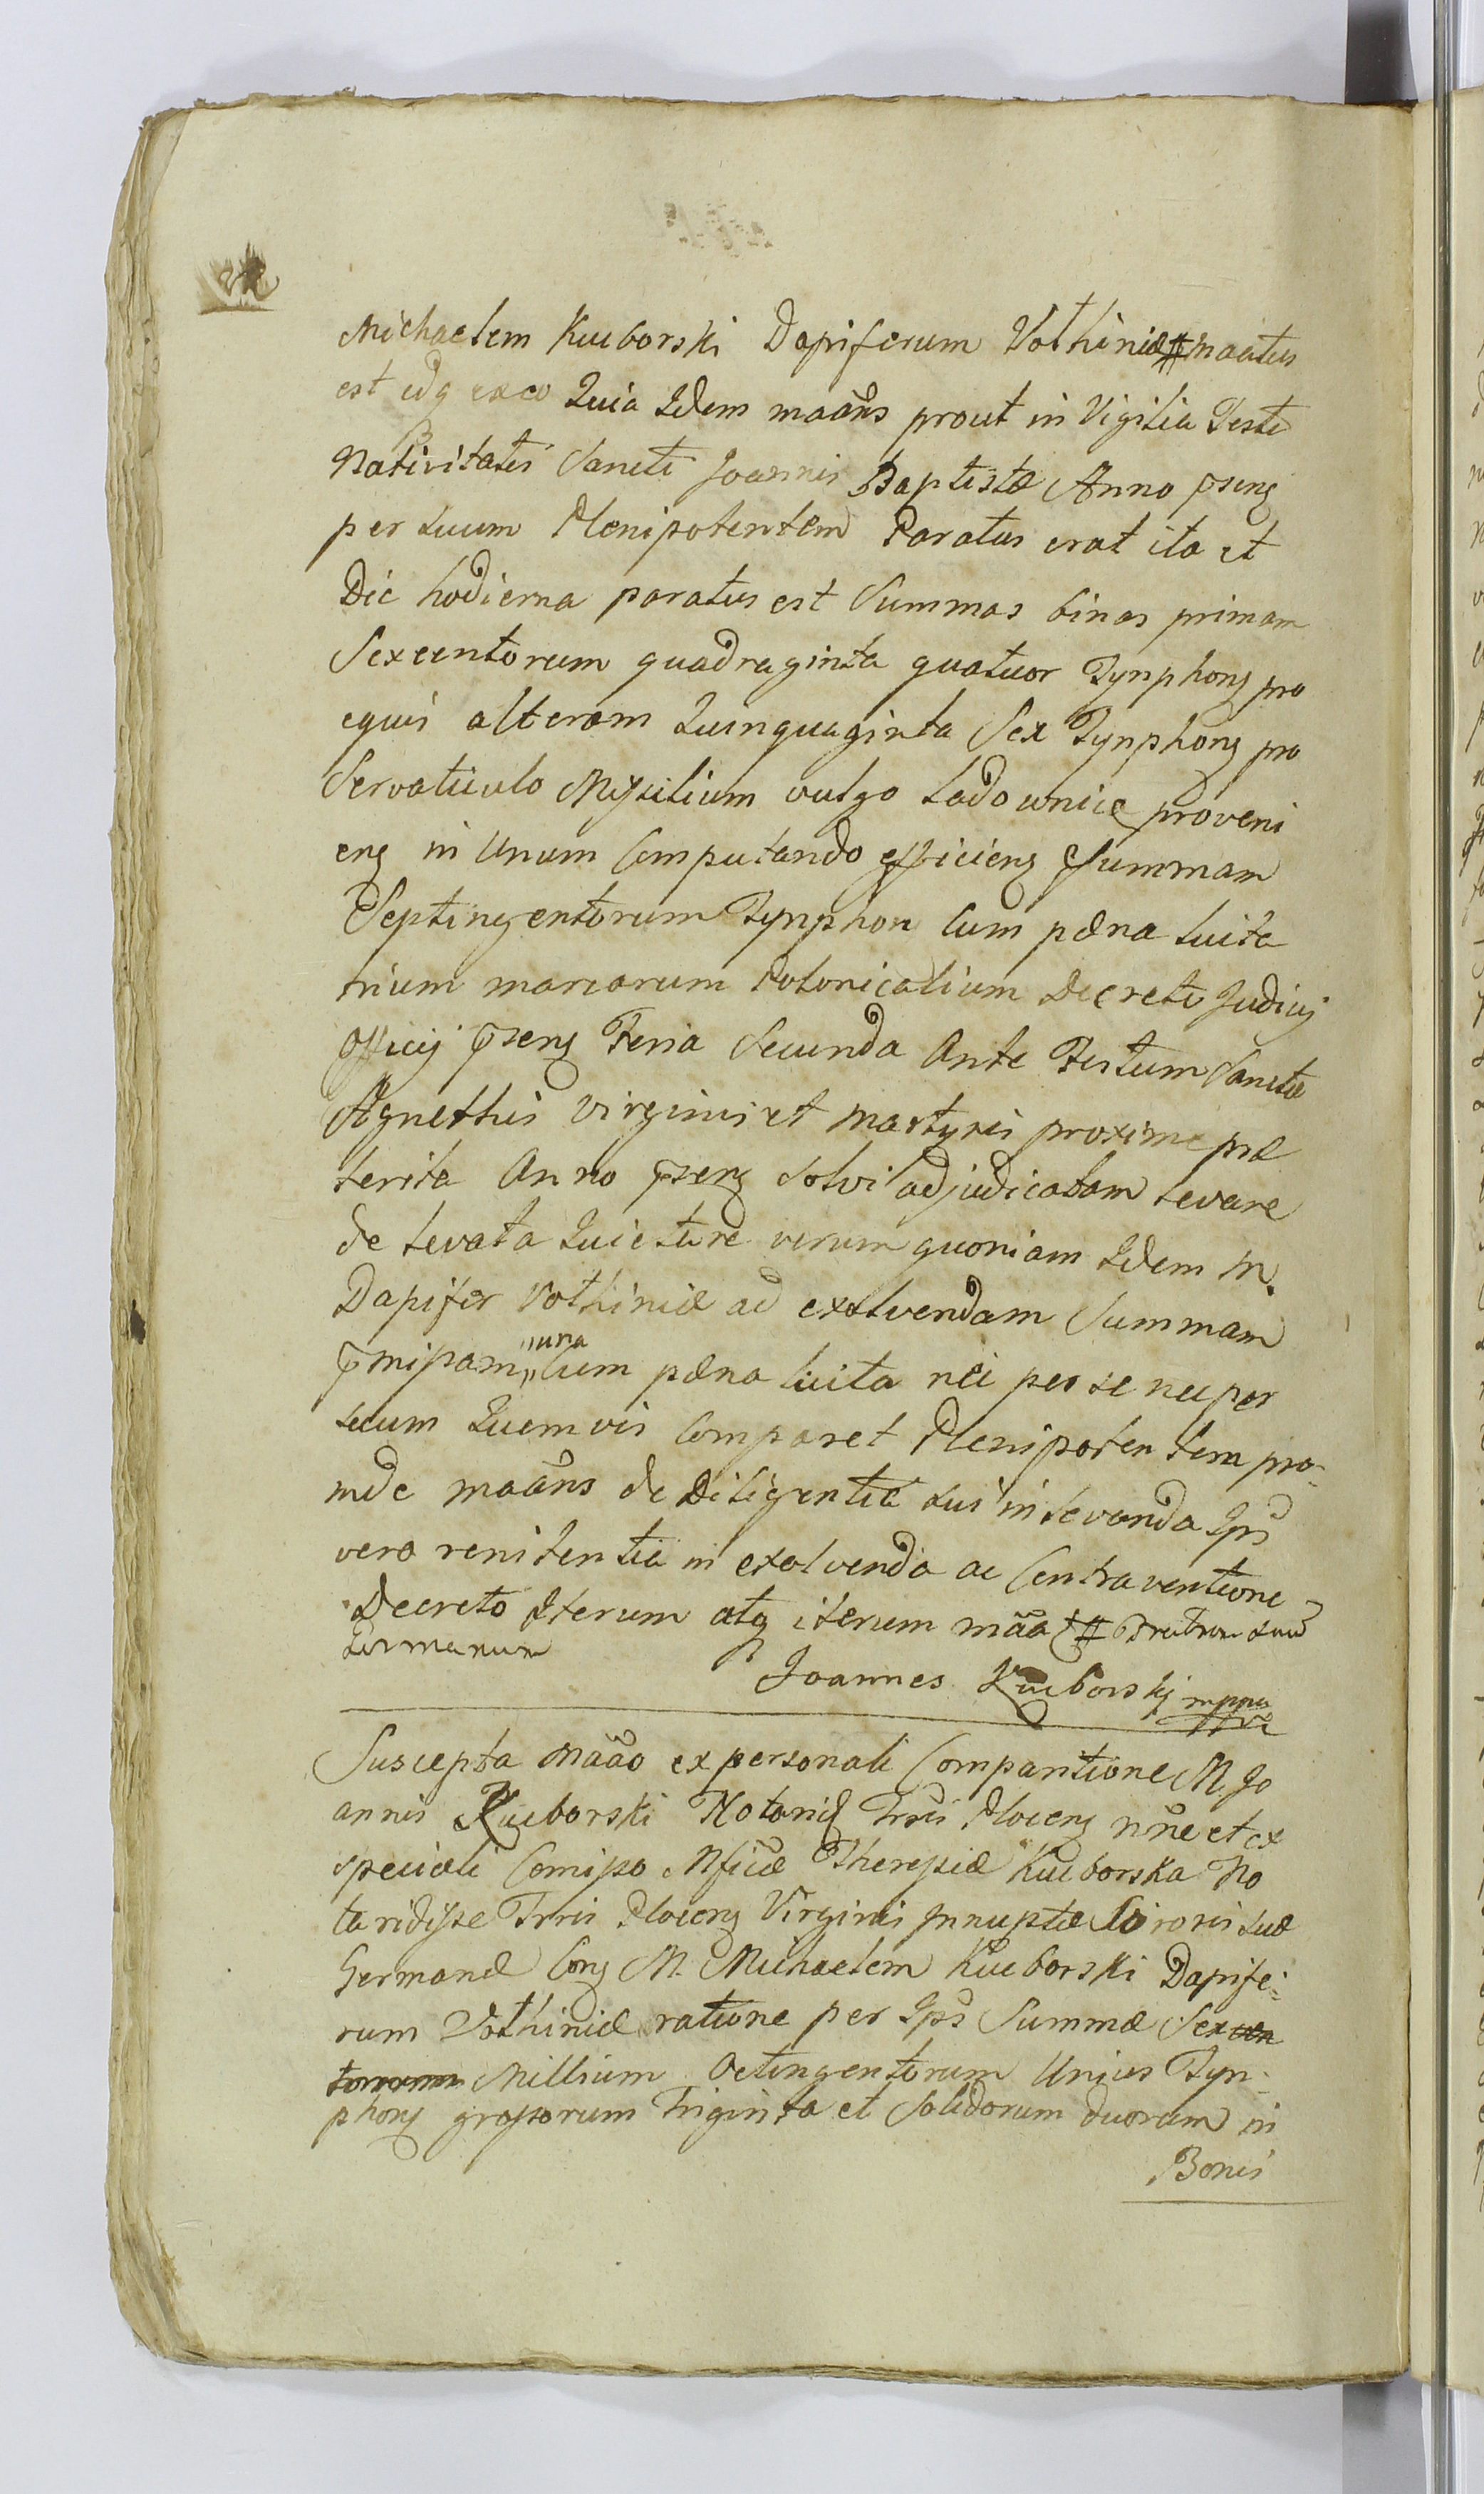 Michaelem Kucborski Dapiferum Vołhiniæ # maatus
est idq exeo Quia Idem maans prout in Vigilia Festi
Nativitatis Sancti Joannis Baptistæ Anno pseng
per suum Plenipotentem Paratus erat ita et
Die hodierna paratus est Summas binas primam
Sexcentorum quadraginta quatuor Tynphong pro
equis alteram Quinquaginta Sex Tynphong pro
Servaticulo Myssilium vulgo ładownice proveni
eng in Unum Computando efficieng Summam
Septingentorum Tynphon Cum pæna luita
trium marcarum Polonicalium Decreto Judicij
Officij pseng Feria Secunda Ante Festum Sanctæ
Agnethis Virginis et Martyris proxime præ
terita Anno pseng solvi adjudicatam levare
de levata Quietare verum quoniam Idem M.
Dapifer Vołhiniæ ad exolvendam Summam
pmissam "una" Cum pæna luita nec per se nec per
suum Quemvis Comparet Plenipotentem pro-
inde maans de Diligentia sui in levanda Ips
vero renitentia in exolvenda ac Contraventione
Decreto Iterum atq iterum maat # Fratrem suu
Germanum
Joannes Kucborski mppa
Suscepta maao ex personali Comparitione M. Jo
annis Kucborski Notarij Trris Ploceng nne et ex
speciali Comisso Mficæ Theresiæ Kucborska No
taridisse Trris Ploceng Virginis Innuptæ Sororis suæ
Germanæ Cong M. Michaelem Kucborski Dapife:
rum Vołhiniæ ratione per Ips Summæ Sexcen
torum Millium Octingentorum Unius Tyn-
phong grossorum Triginta et Solidorum duorum in
Bonis